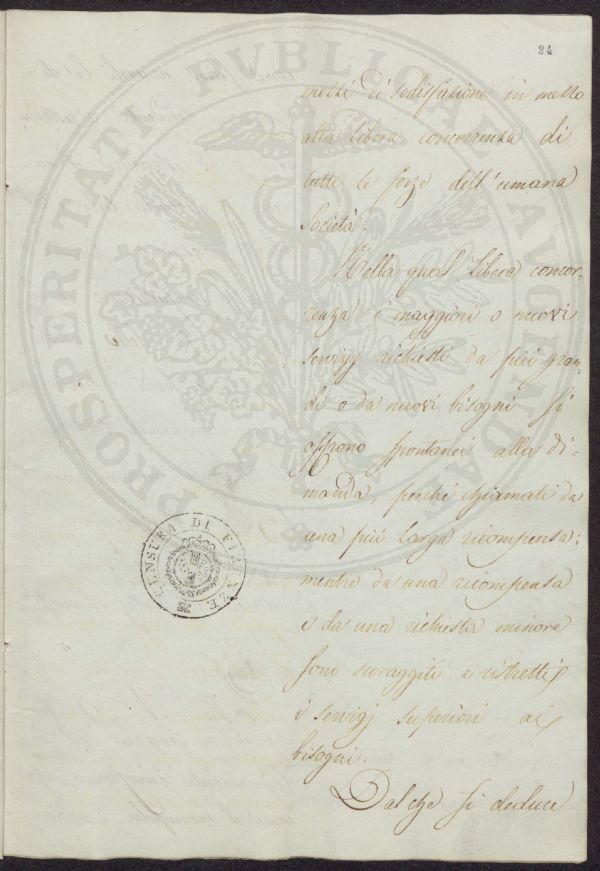 24
mezzi di sodisfazione in mezzo
alla libera concorrenza di
tutte le forze dell'umana
Società.
Nella qual libera concor-
renza i maggiori o nuovi
servigj richiesti da più gran-
di o da nuovi bisogni si
offrono spontanei alla di-
manda, perché chiamati da
una più larga ricompensa;
mentre da una ricompensa
e da una richiesta minore
sono scoraggiti e ristretti
i servigj superiori ai
bisogni.
Dal che si deduce
CENSURA DI FIRENZE
PROSPERITATI PVBLICAE AVGENDAE